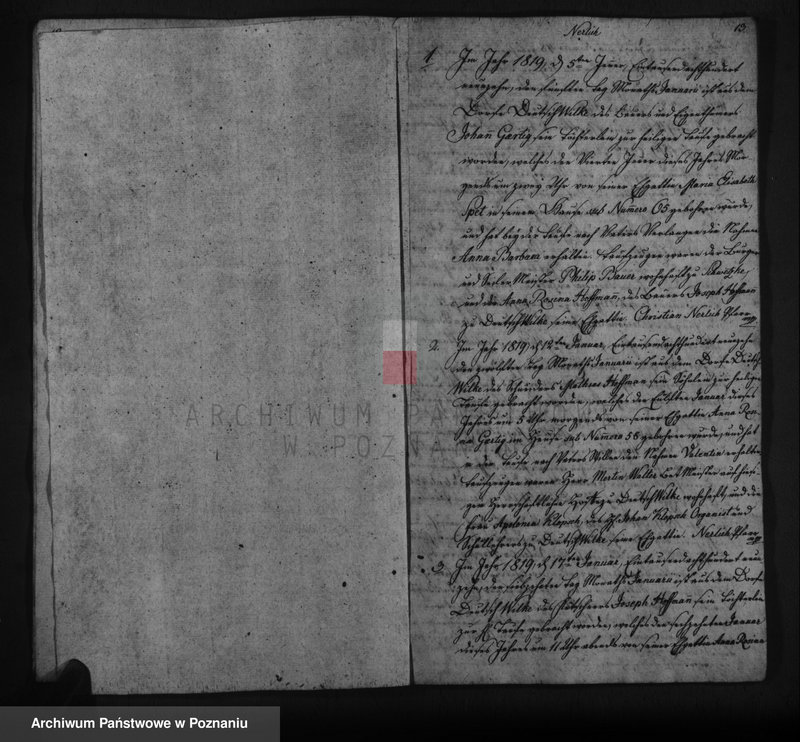 Nerlich
13.
1. Im Jahr 1819, d 5ten Jener, Eintausendachthundert
neunzehn, den fünften Tag Monaths Januarii ist aus dem
Dorfe DeutschWilke des Bauers und Eigenthümers
Johañ Gærtig sein Töchterlein zur heiligen Taufe gebracht
worden, welches den Vierten Jener dieses Jahres Mor-
gends um zwey Uhr von seiner Ehgattin Maria Elisabeth
in seinem Hause sub Numero 65 gebohren wurde,
und hat bey der Taufe nach Vaters Verlangen die Nahmen
Anna Barbara erhalten. Taufzeugen waren der Bürger
und Meister Philip Bauer wohnhaft zu
und die Anna Rosina Hoffmañ, des Bauers Joseph Hoffmañ
zu DeutschWilke seine Ehgattin. Christian Nerlich Pfarr
2. Im Jahr 1819, d 12ten Januar, Eintausendachthundert neunzehn
den zwölften Tag Monaths Januarii ist aus dem Dorfe Deutsch
Wilke des Matheus Hoffmañ sein Söhnlein zur heiligen
Taufe gebracht worden, welches den Eilften Januar dieses
Jahres um 5 Uhr morgends von seiner Ehgattin Anna Rosi-
na Gærtig im Hause sub Numero 56 gebohren wurde, und hat
in der Taufe nach Vaters Willen den Nahmen Valentin erhalten
Taufzeugen waren Herr Martin Walter Meister auf hiesi-
gem Herrschaftlichen zu DeutschWilke wohnhaft, und die
Frau Apolonia Klopsch, des H Johañ Klopsch Organist und
Schullehrers zu DeutschWilke seine Ehgattin. Nerlich Pfarr
3. Im Jahr 1819, d 17ten Januar, Eintausendachthundert neun
zehn, den siebzehnten Tag Monaths Januarii ist aus dem Dorfe
DeutschWilke des Joseph Hoffmañ sein Töchterlein
zur H. Taufe gebracht worden, welches den sechzehnten Januar
dieses Jahres um 11 Uhr abends von seiner Ehgattin Anna Rosina
ARCHIWUM PAŃSTWOWE
W POZNANIU
Archiwum Państwowe w Poznaniu